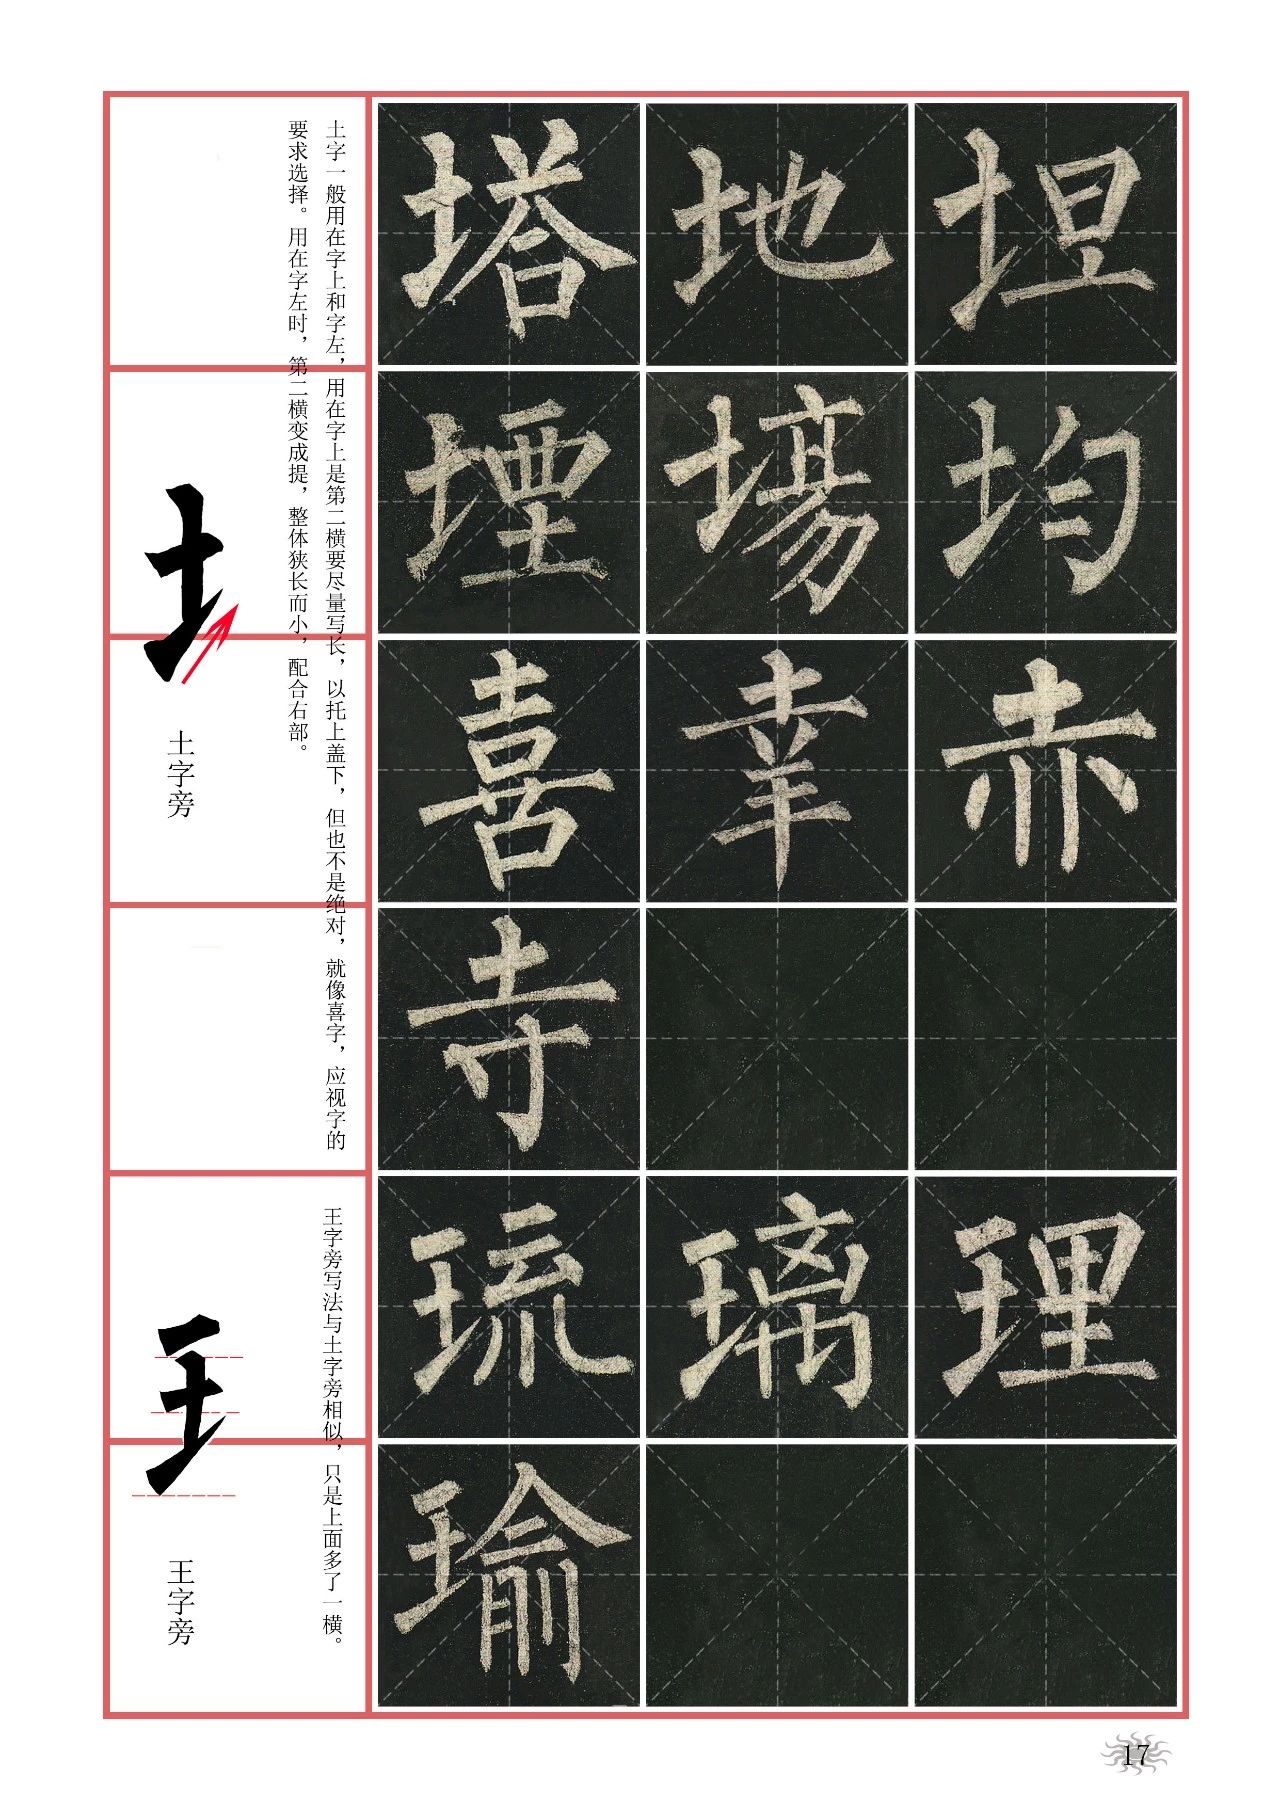 土字一般用在字上和字左，用在字上是第二横要尽量写长，以托上盖下，但也不是绝对，就像喜字，应视字的
要求选择。用在字左时，第二横变成提，整体狭长而小，配合右部。
土
土字旁
王字旁写法与土字旁相似，只是上面多了一横。
王
王字旁
塔地坦
堙場均
喜幸赤
寺
琉璃理
瑜
17